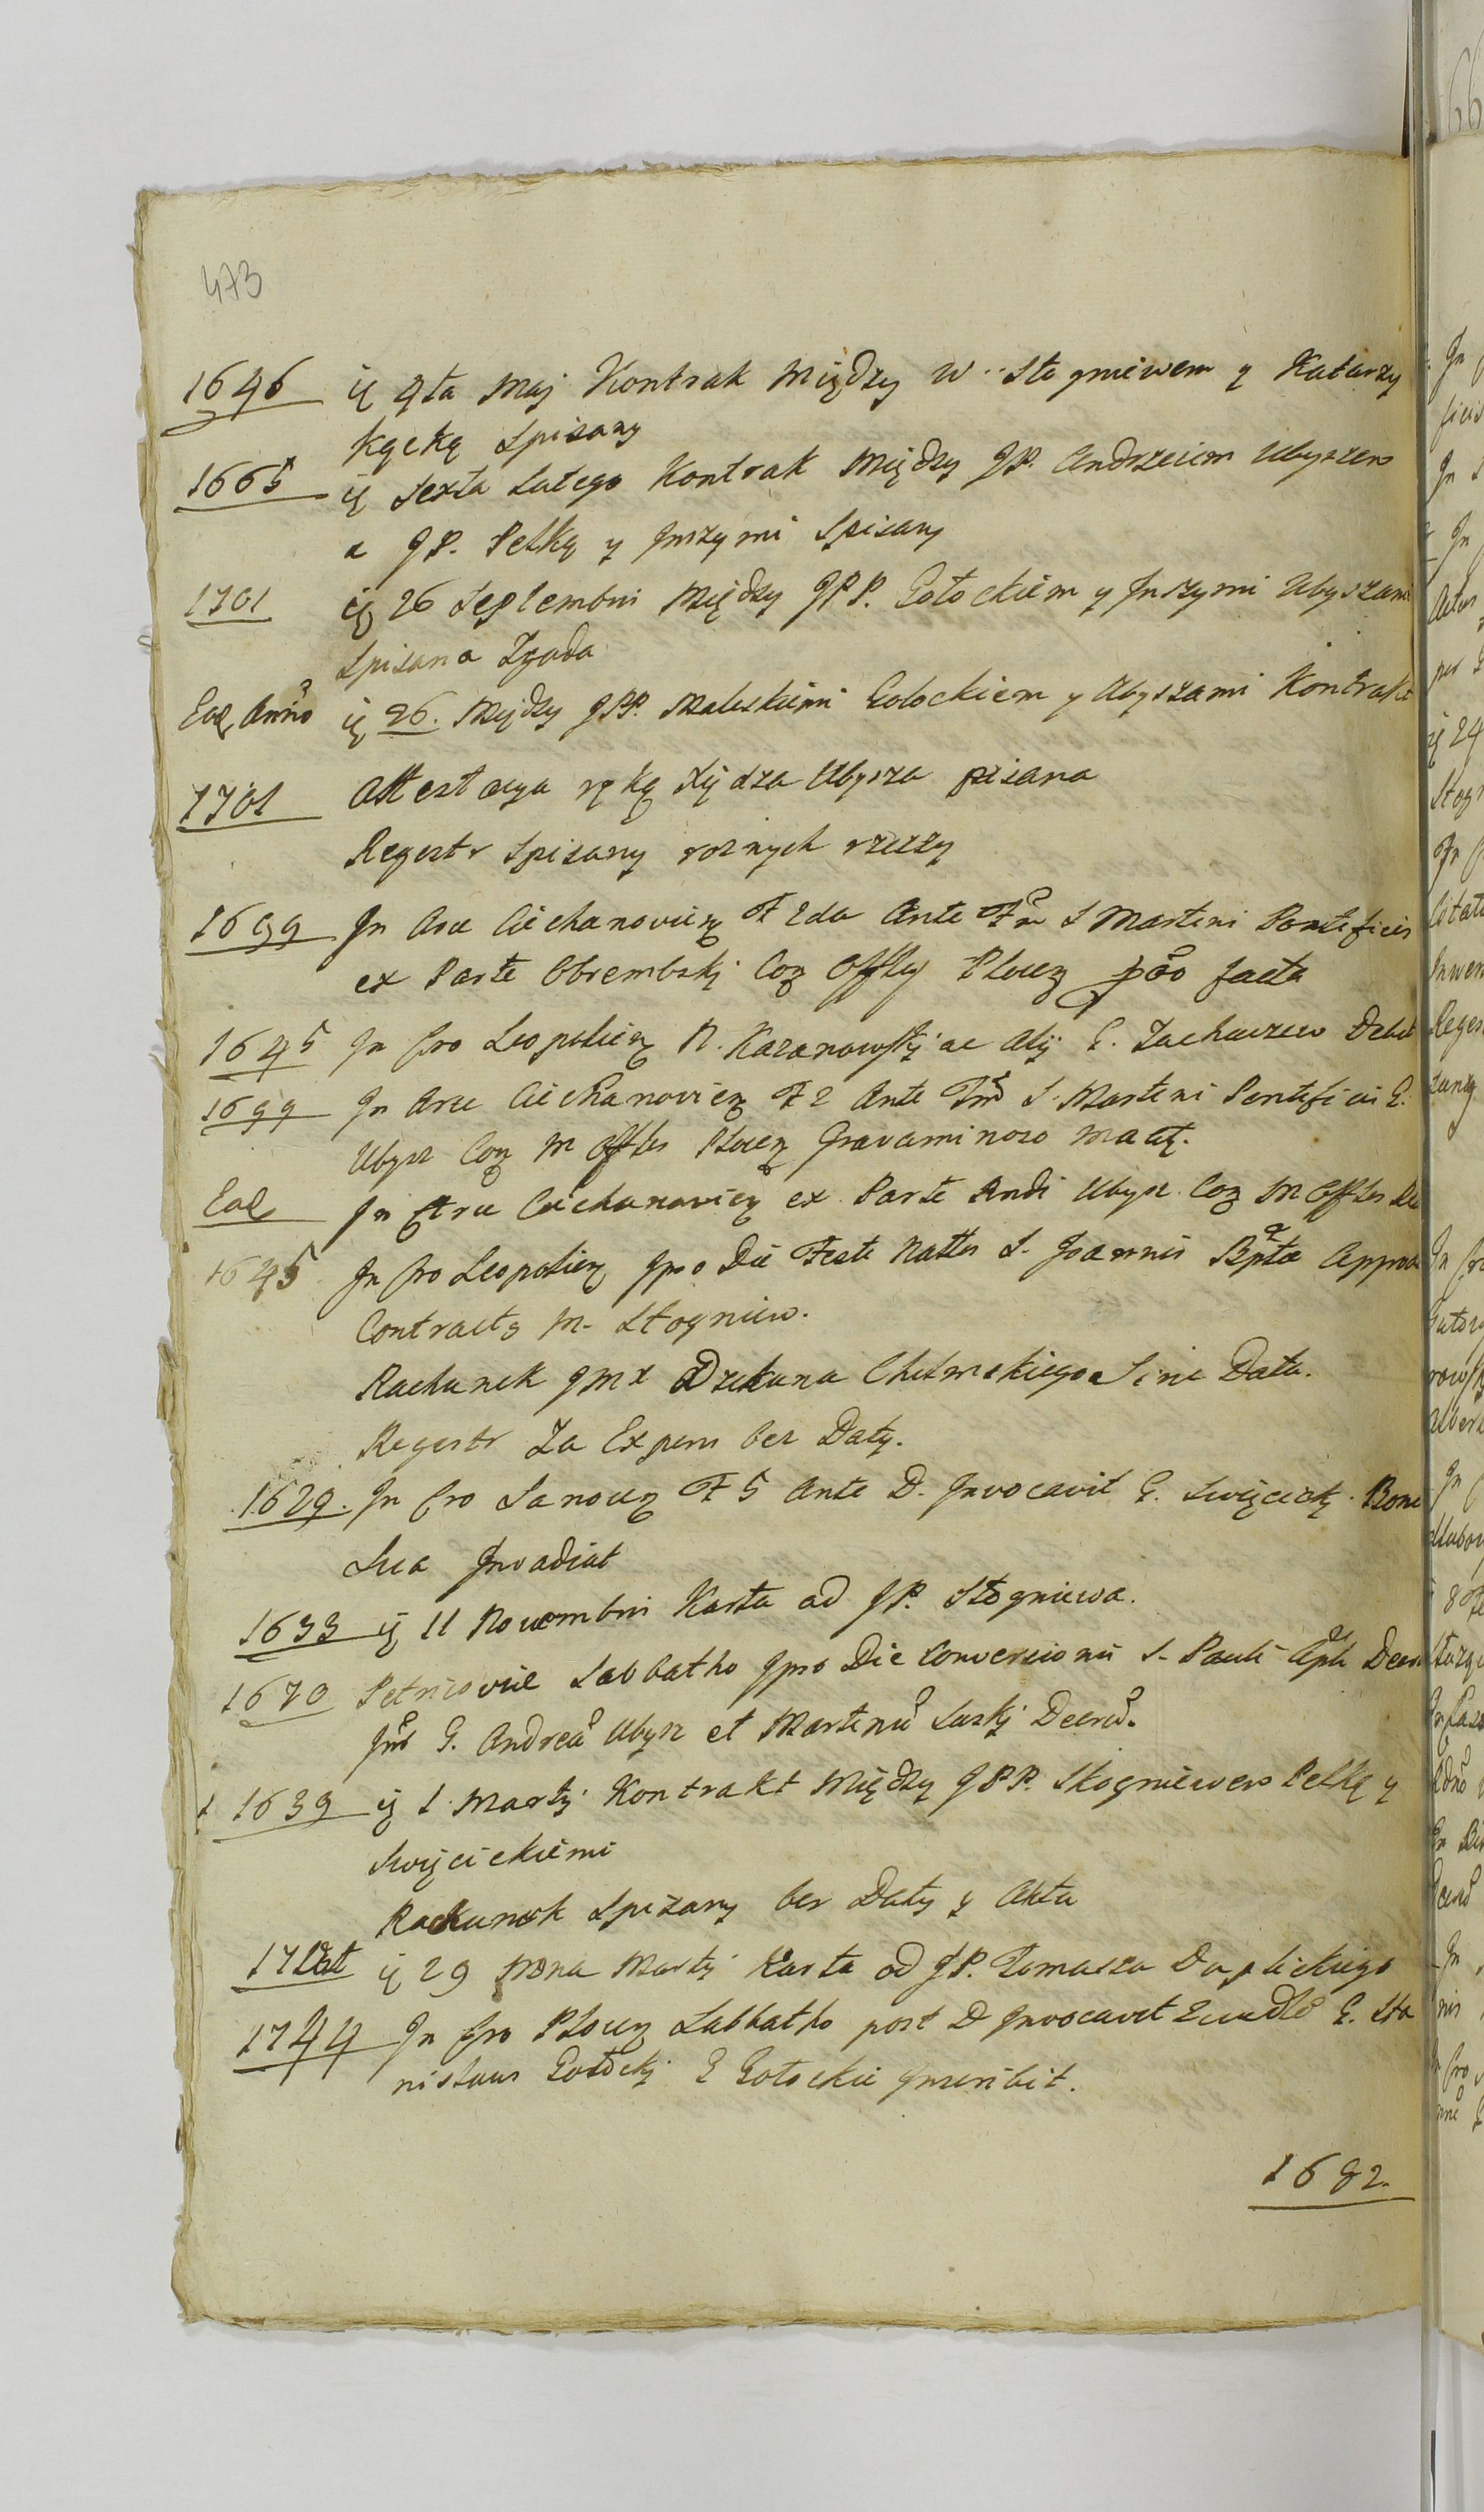 473
1646 ię 4ta Maj Kontrak Między W. Stogniewem y Katarzy
Kęcką Spisany
1665 ię Sexta Lutego Kontrak Między JP. Andrzeiem Ubyszem
a JP. Pełką y Jnszymi Spisany
1701 ię 26 Septembris Między JPP. Gołockiem y Jnszymi Ubyszami
Spisana Zgoda
Eod Anno ię 26. Między JPP. Maleskiemi Gołockiem y Ubyszami Kontrakt
1701 Attestacya ręką Xiędza Ubysza pisana
Regestr Spisany roznych rzeczy
1699 Jn Arce Ciechanovien F 2da Ante S Martini Pontificis
ex Parte Obrembskj Con Offles Plocen facta
1645 Jn Cro Leopolien N. Kazanowskj ac alij G. Zachaczew
1699 Jn Arce Ciechanovien F 2 Ante S. Martini Pontificis G.
Ubysz Con M Offles Plocen Gravaminoro
Eod Jn Arce Ciechanovien ex Parte Andi Ubysz Con M Offles
1645 Jn Cro Leopolien Jpso Die Festi Nattis S. Joannis Bptæ
Contracts M. Stogniew.
Rachunek JMX Dziekana Chełmskiego Sine Data.
Regestr Za Expens bez Daty.
1629. Jn Cro Sanocen F 5 Ante D. Jnvocavit G. Swięcickj Bona
Sua Jnvadiat
1633 ię 11 Novembris Karta od JP. Stogniewa.
1670 Petricoviæ Sabbatho Jpso Die Conversionis S. Pauli Apli
G. Andreã Ubysz et Martinũ Decrũ.
1639 ię 1 Martij Kontrakt Między JPP. Stogniewem Pełką y
Swięcickiemi
Rachunek Spisany bez Daty y Akta
ię 29 Martij Karta od JP. Tomasza Daplickiego
1744 Jn Cro Plocen Sabbatho post D Jnvocavit G. Sta
nislaus Gołockj G Gołockie Jnscribit.
1682.